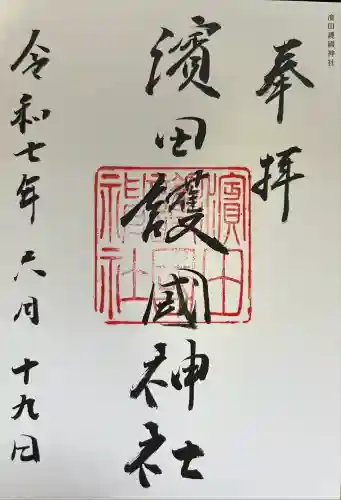 濵田護國神社
奉拝
濵田護國神社
濵田護國神社
令和七年 六月 十九日